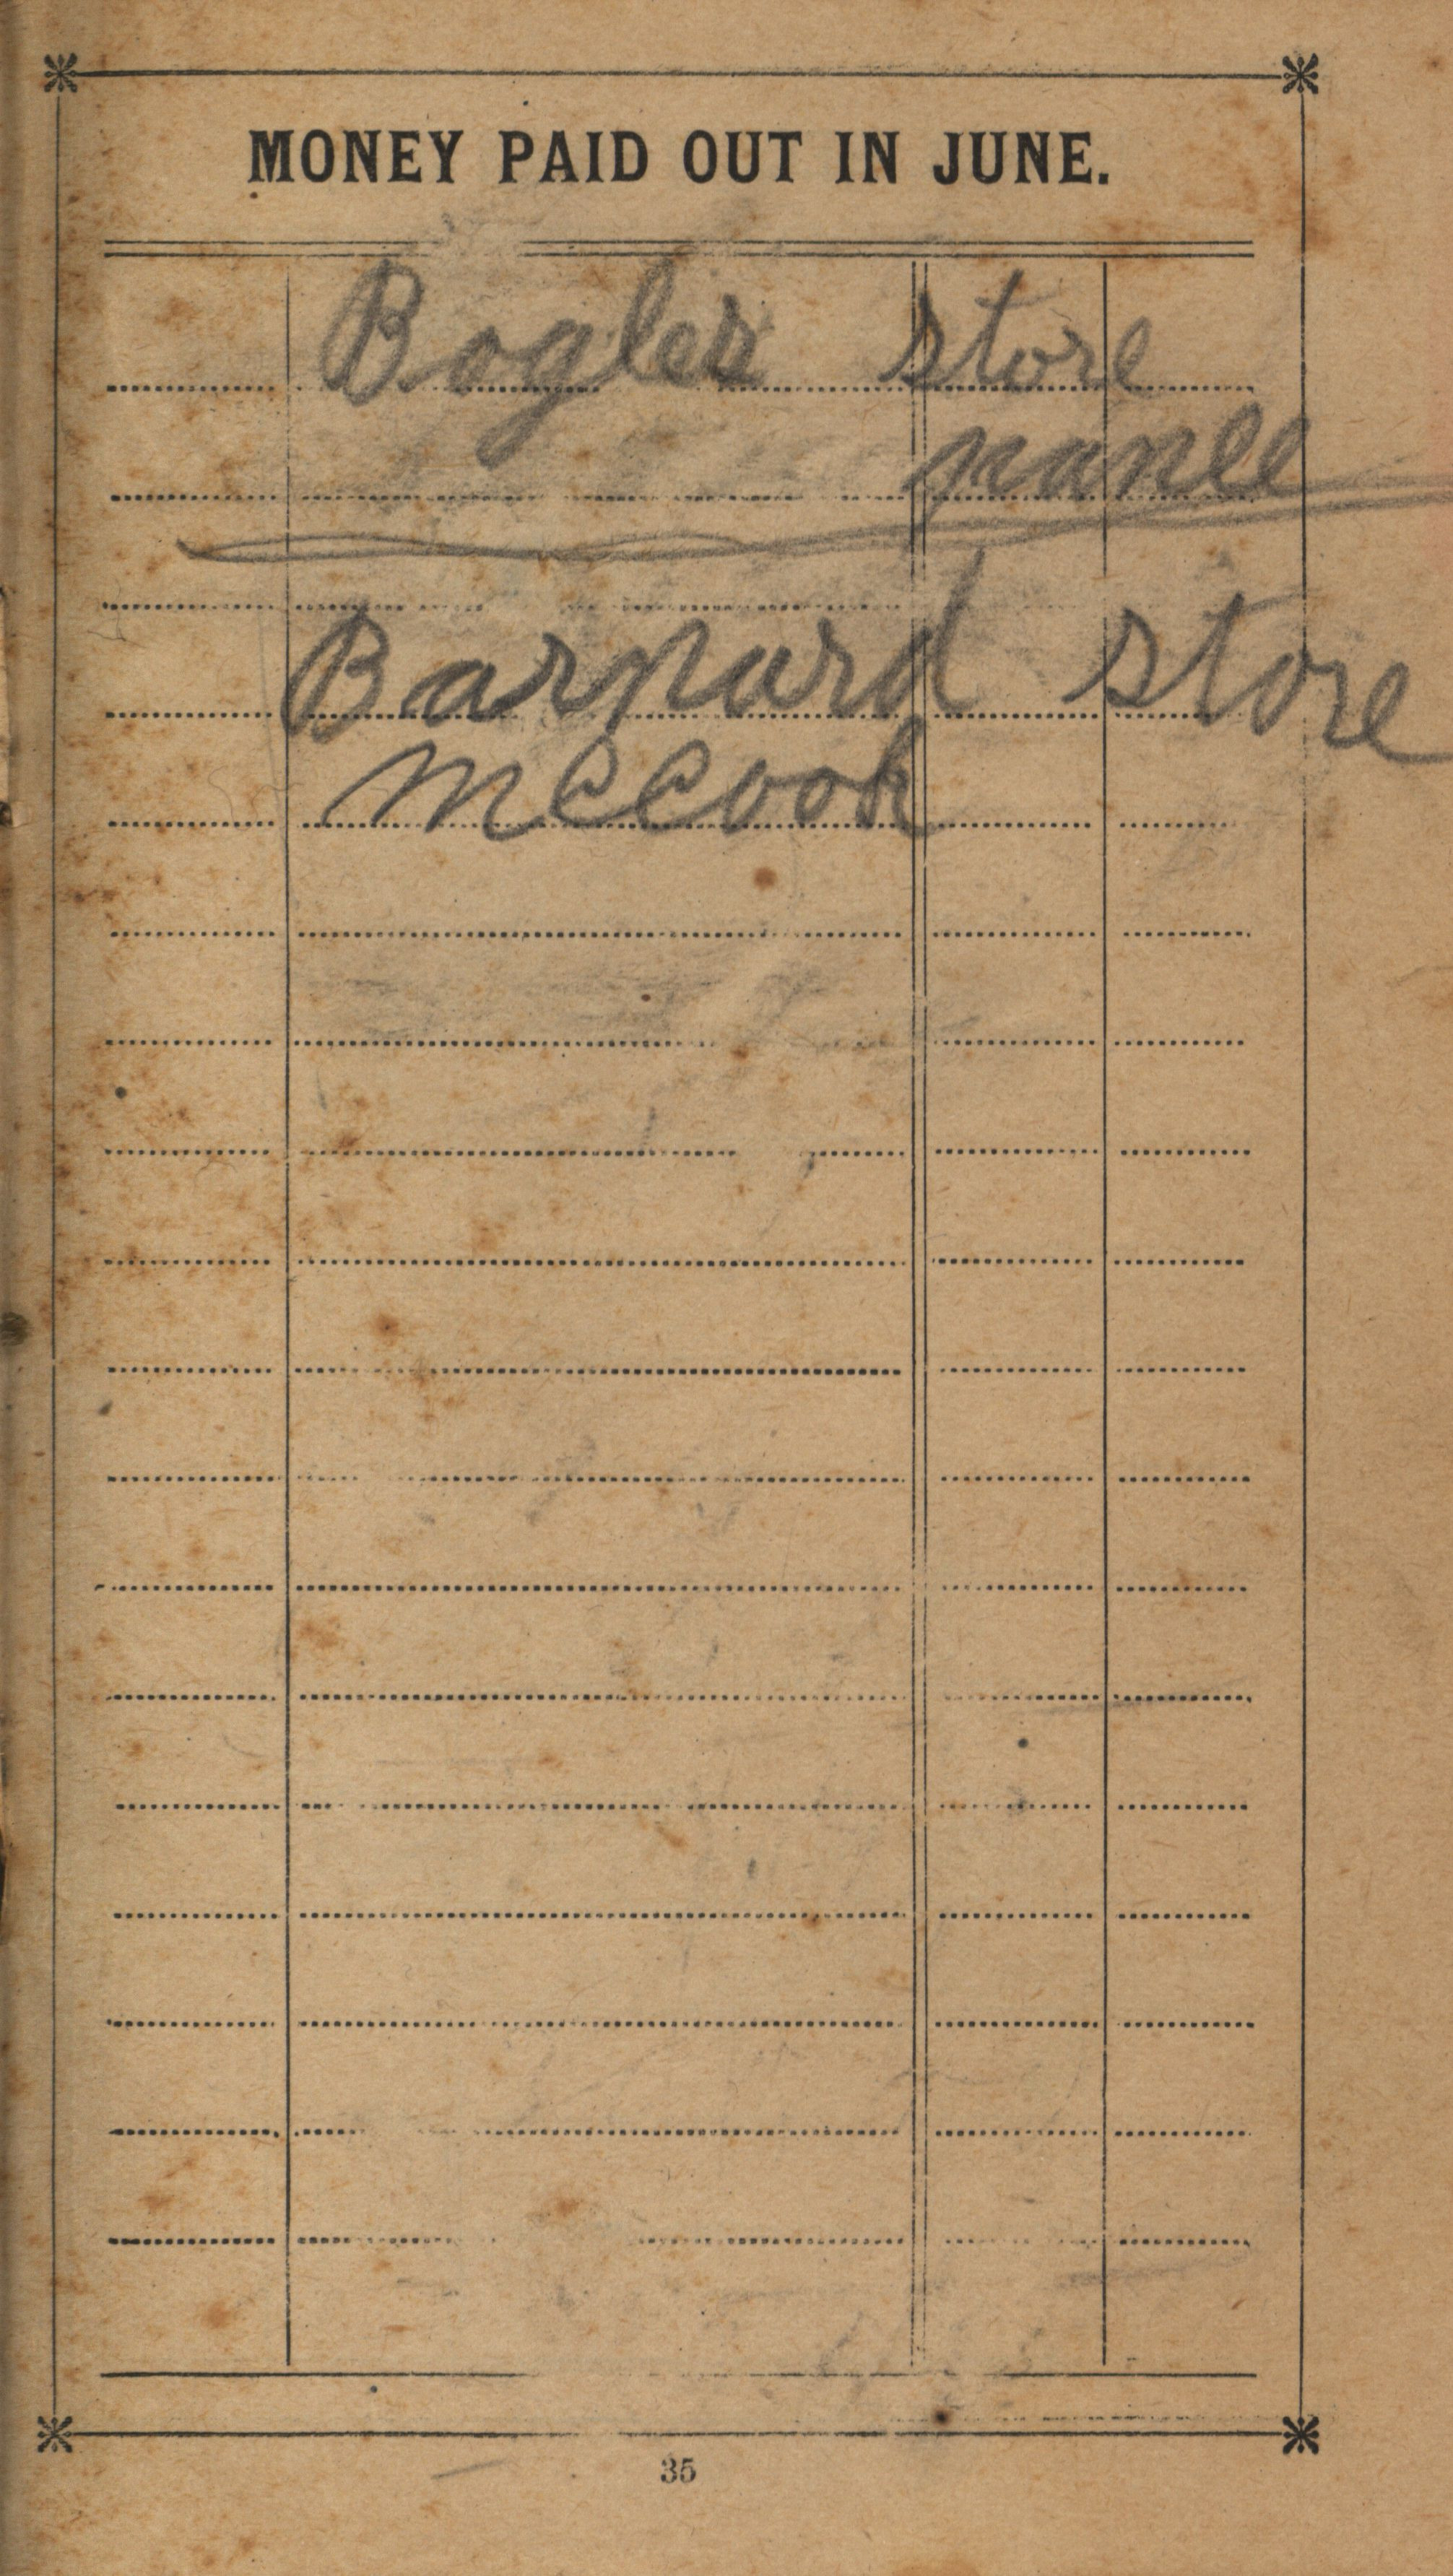 MONEY PAID OUT IN JUNE.
Bogles store
Barnard store
McCook
35